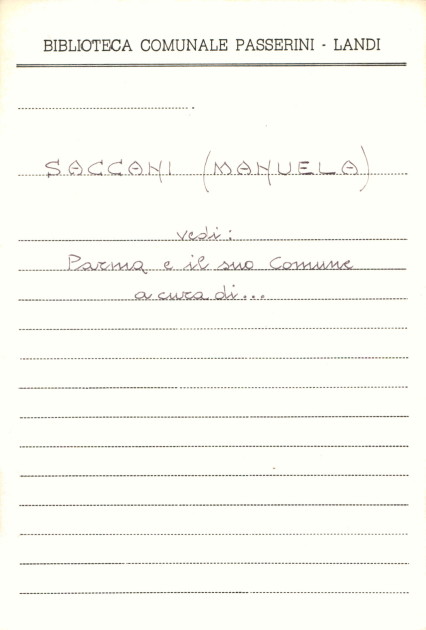 BIBLIOTECA COMUNALE PASSERINI - LANDI
SACCANI (MANUELA)
vedi:
Parma e il suo Comune
a cura di...